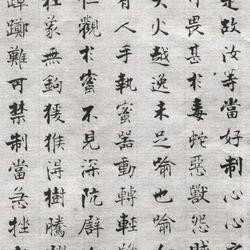 是故汝等當好制心心
可畏甚於毒蛇惡獸怨賊
大火越逸未足喻也
有人手執蜜器動轉輕
但觀於蜜不見深阬譬
狂象無鉤猨猴得樹騰
踔躑難可禁制當急挫